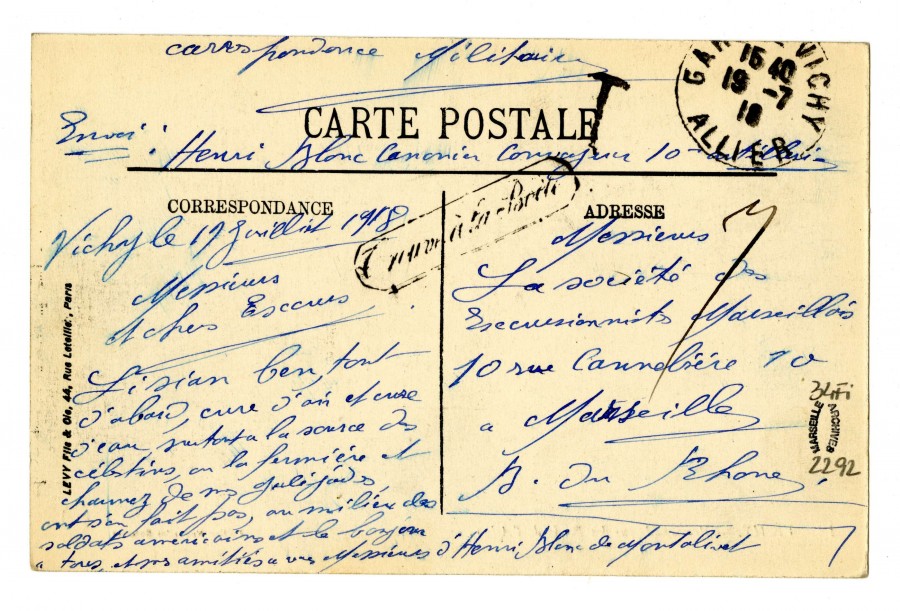 correspondance Militaire
T
GARE VICHY
15 40
19 -7
18
ALLIER
CARTE POSTALE
Envoi : Henri Blanc Canonier Convoyeur 10 artillerie
CORRESPONDANCE
Trouvé à la Boite
ADRESSE
Vichy le 17 Juillet 1918
Messieurs
et chers Excurs
Li sian ben, tout
d'abord, cure d'air et cure
d'eau, surtout a la source des
célestins, ou la fermière et
charmez de nos galéjades,
ont s'en fait pas, au milieu des
soldats américains et le bonjour
a tous, et mes amitiés a vous Messieurs d'Henri Blanc de Montolivet
Messieurs
La société des
Excursionnistes Marseillais
10 rue Cannebière 10
a Marseille
B. du Rhone
34Fi
MARSEILLE ARCHIVES
2292
LEVY Fils & Cie, 44, Rue Letellier, Paris